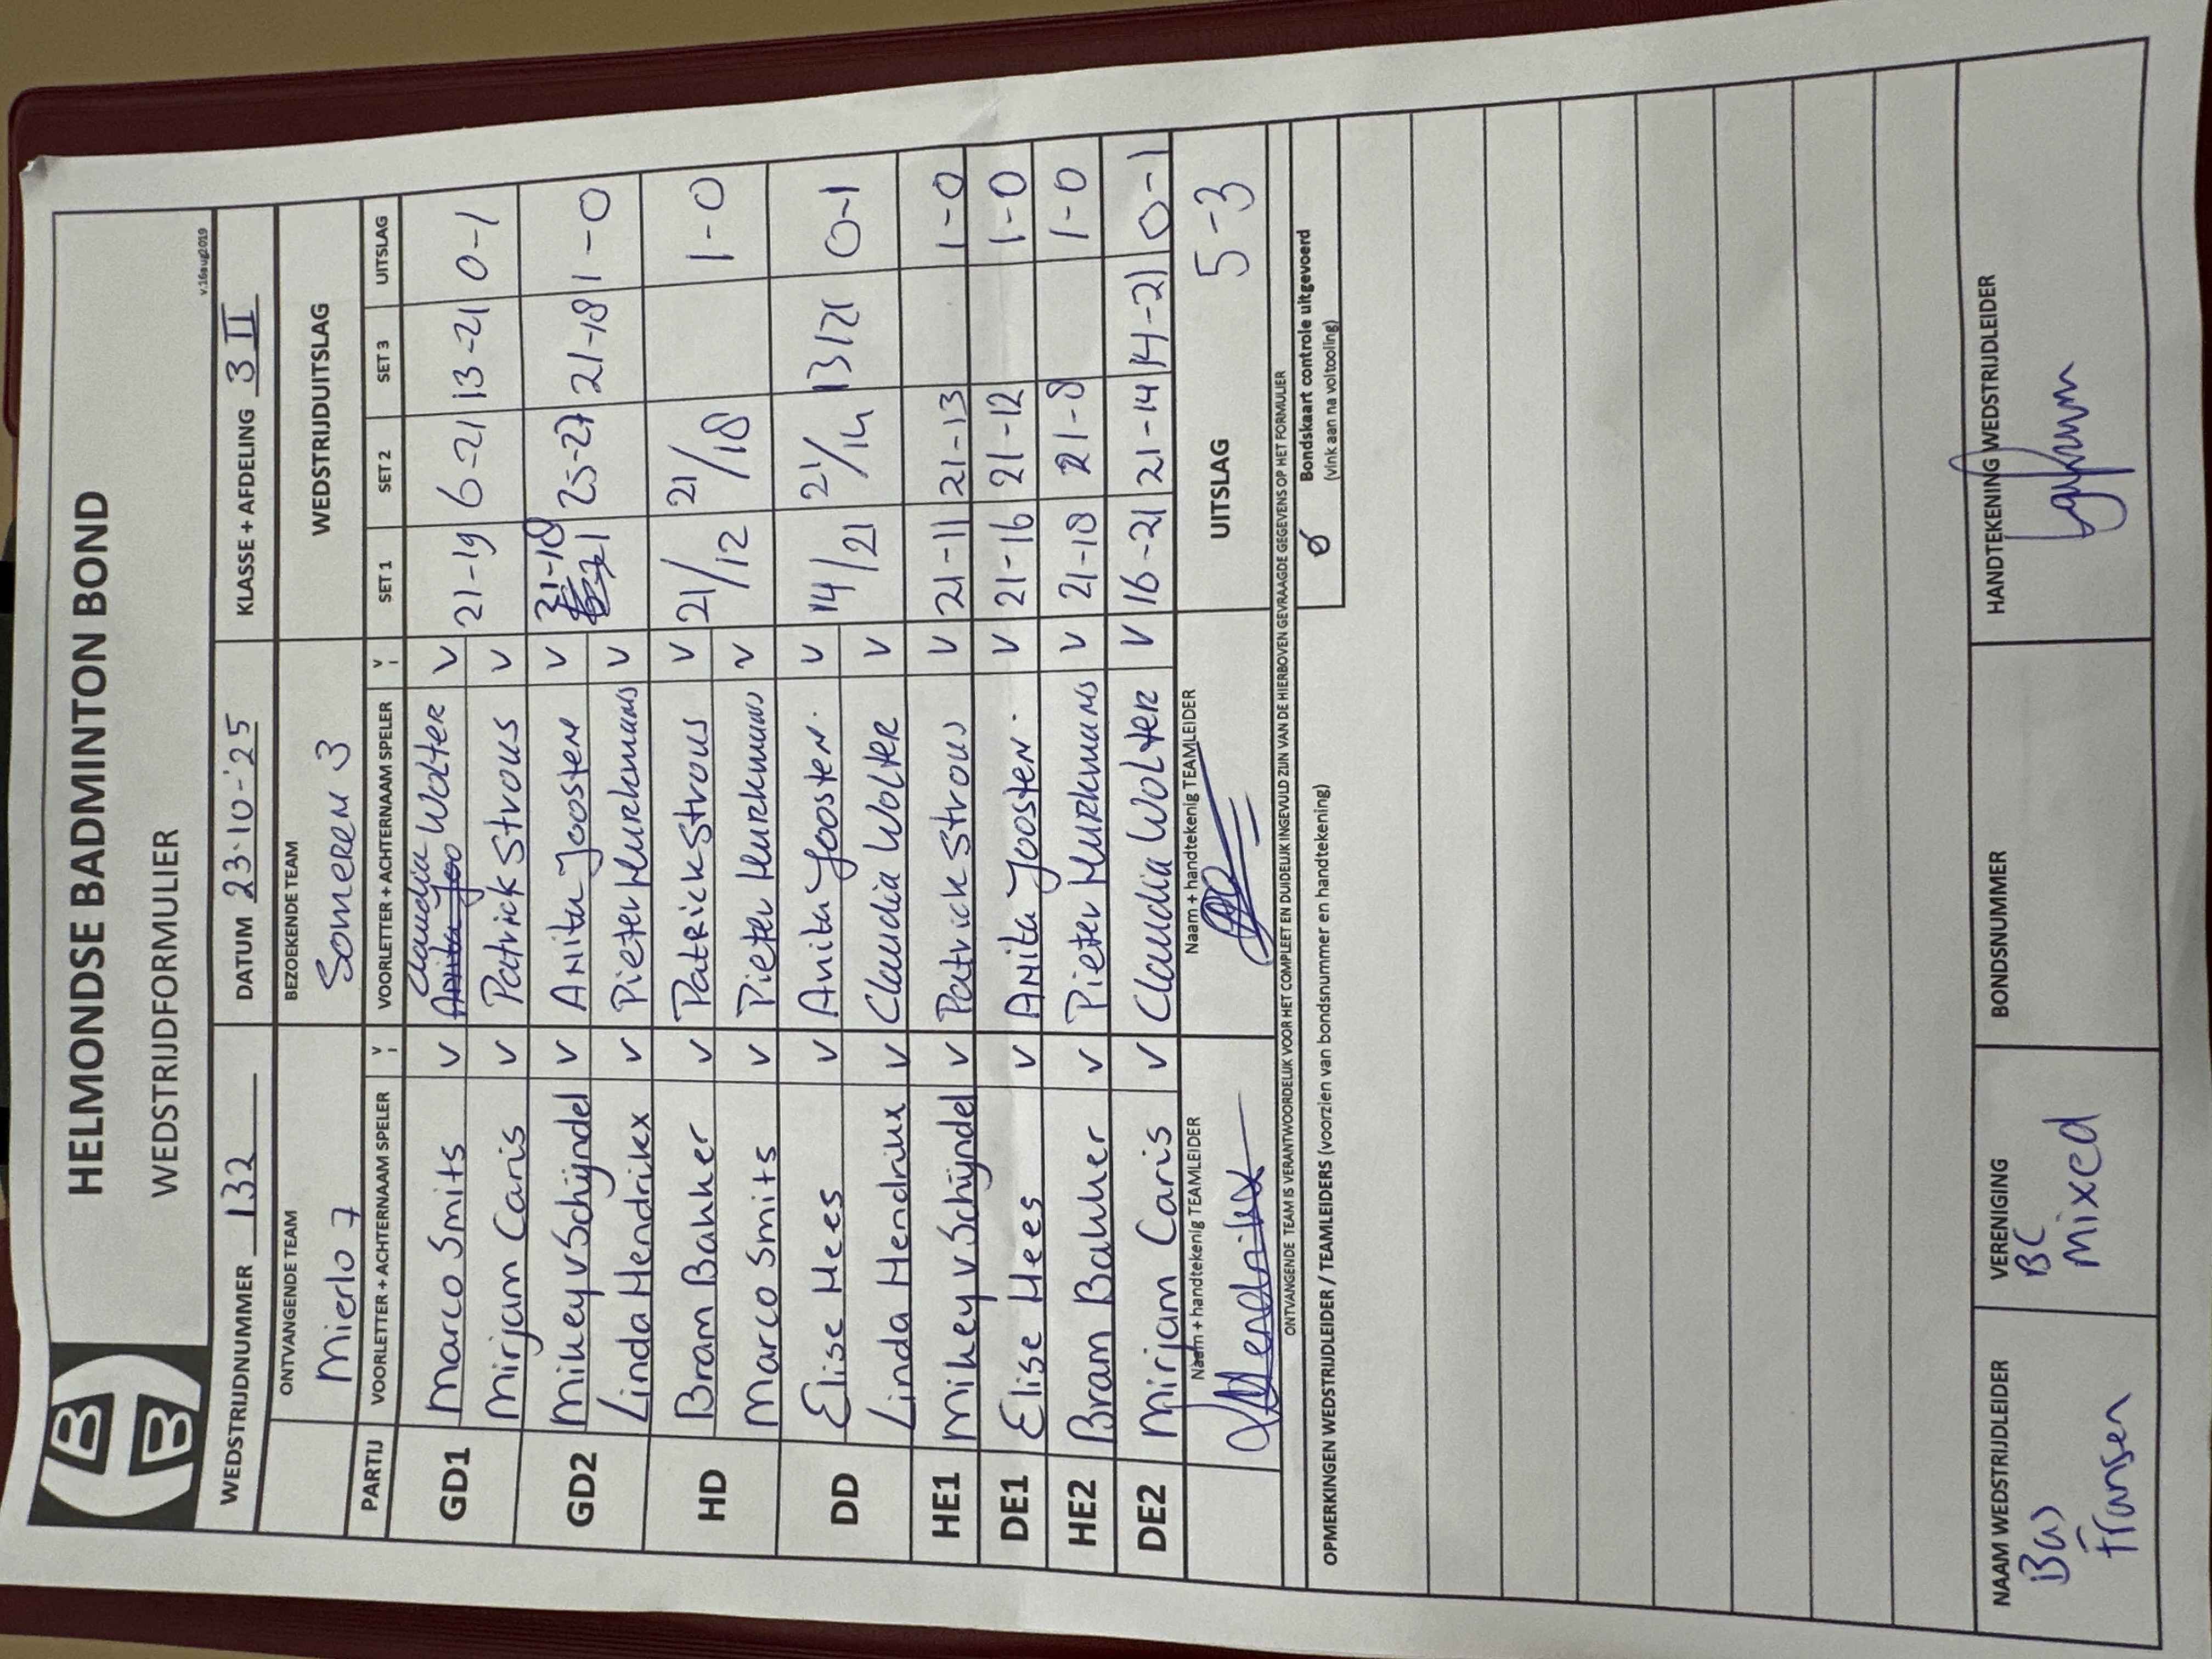 HELMONDSE BADMINTON BOND
WEDSTRIJDFORMULIER
v.16aug2019
WEDSTRIJDNUMMER 132 DATUM 23-10-'25 KLASSE + AFDELING 3 II
ONTVANGENDE TEAM BEZOEKENDE TEAM WEDSTRIJDUITSLAG
Mierlo 7 Someren 3
PARTIJ VOORLETTER + ACHTERNAAM SPELER V VOORLETTER + ACHTERNAAM SPELER V SET 1 SET 2 SET 3 UITSLAG
GD1 Marco Smits V Claudia Wolter V 21-19 6-21 13-21 0-1
Mirjam Caris V Patrick Strous V
GD2 Mikey v Schijndel V Anita Joosten V 21-18 25-27 21-18 1-0
Linda Hendrikx V Pieter Hurkmans V
HD Bram Bakker V Patrick Strous V 21/12 21/18 1-0
Marco Smits V Pieter Hurkmans V
DD Elise Hees V Anita Joosten V 14/21 21/14 13/21 0-1
Linda Hendrikx V Claudia Wolter V
HE1 Mikey v Schijndel V Patrick Strous V 21-11 21-13 1-0
DE1 Elise Hees V Anita Joosten V 21-16 21-12 1-0
HE2 Bram Bakker V Pieter Hurkmans V 21-18 21-8 1-0
DE2 Mirjam Caris V Claudia Wolter V 16-21 21-14 14-21 0-1
Naam + handtekenig TEAMLEIDER Naam + handtekenig TEAMLEIDER UITSLAG 5-3
ONTVANGENDE TEAM IS VERANTWOORDELIJK VOOR HET COMPLEET EN DUIDELIJK INGEVULD ZIJN VAN DE HIERBOVEN GEVRAAGDE GEGEVENS OP HET FORMULIER
OPMERKINGEN WEDSTRIJDLEIDER / TEAMLEIDERS (voorzien van bondsnummer en handtekening)
Bondskaart controle uitgevoerd
(vink aan na voltooiing)
NAAM WEDSTRIJDLEIDER VERENIGING BONDSNUMMER HANDTEKENING WEDSTRIJDLEIDER
Bas BC
Fransen Mixed